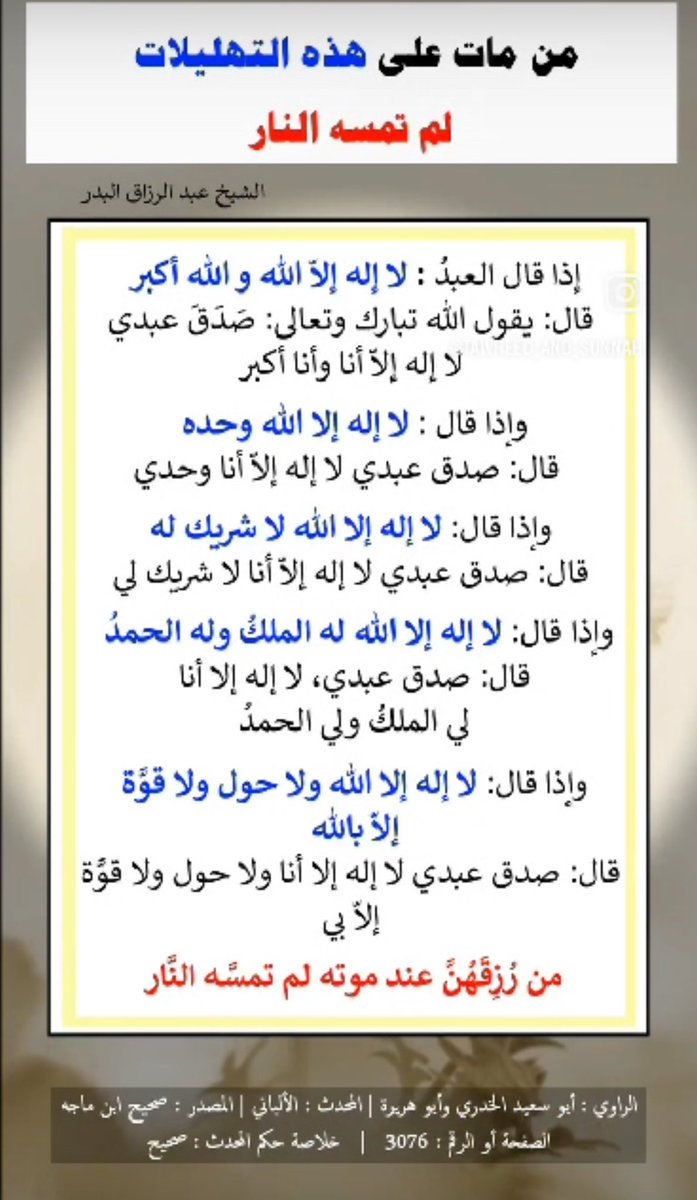 من مات على هذه التهليلات
لم تمسه النار
الشيخ عبد الرزاق البدر
إذا قال العبدُ : لا إله إلاّ الله و الله أكبر
قال: يقول الله تبارك وتعالى: صَدَقَ عبدي
@TAWHEED_AND_SUNNAH
لا إله إلاّ أنا وأنا أكبر
وإذا قال : لا إله إلا الله وحده
قال: صدق عبدي لا إله إلاّ أنا وحدي
وإذا قال: لا إله إلا الله لا شريك له
قال: صدق عبدي لا إله إلاّ أنا لا شريك لي
وإذا قال: لا إله إلا الله له الملكُ وله الحمدُ
قال: صدق عبدي، لا إله إلا أنا
لي الملكُ ولي الحمدُ
وإذا قال: لا إله إلا الله ولا حول ولا قوَّة
إلاّ بالله
قال: صدق عبدي لا إله إلا أنا ولا حول ولا قوَّة
إلاّ بي
من رُزِقَهُنَّ عند موته لم تمسَّه النَّار
الراوي : أبو سعيد الخدري وأبو هريرة | المحدث : الألباني | المصدر : صحيح ابن ماجه
الصفحة أو الرقم : 3076 | خلاصة حكم المحدث : صحيح